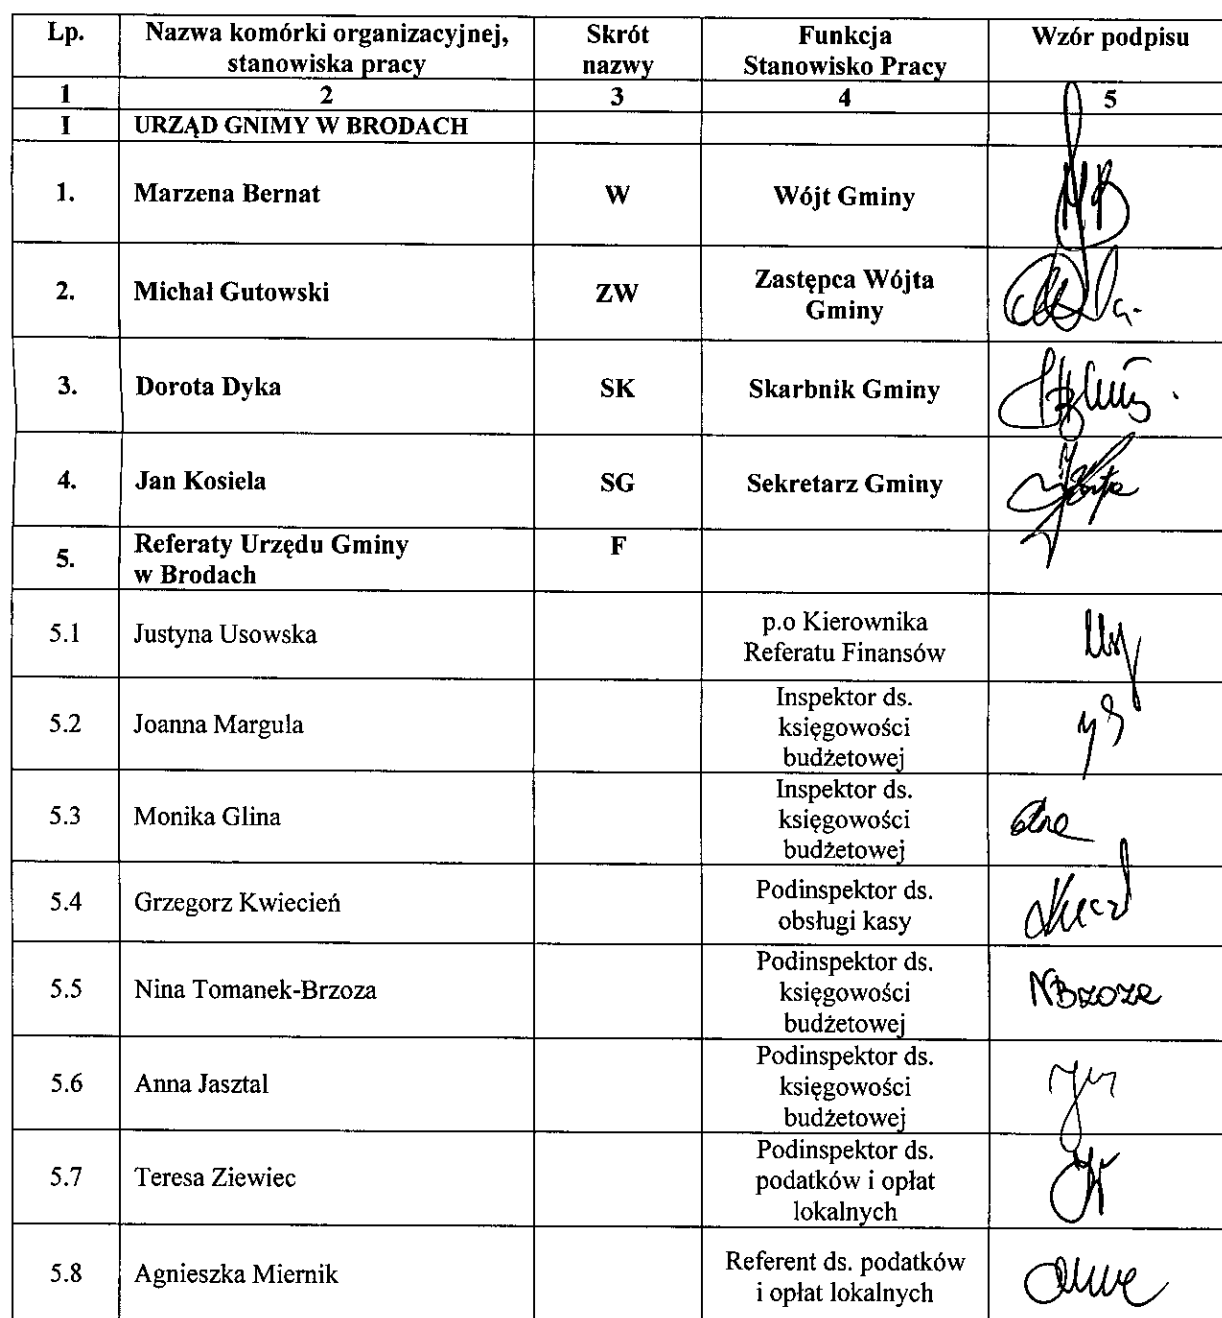 Lp. Nazwa komórki organizacyjnej, Skrót Funkcja Wzór podpisu
stanowiska pracy nazwy Stanowisko Pracy
1 2 3 4 5
I URZĄD GNIMY W BRODACH
1. Marzena Bernat W Wójt Gminy
2. Michał Gutowski ZW Zastępca Wójta
Gminy
3. Dorota Dyka SK Skarbnik Gminy
4. Jan Kosiela SG Sekretarz Gminy
5. Referaty Urzędu Gminy F
w Brodach
5.1 Justyna Usowska p.o Kierownika
Referatu Finansów
5.2 Joanna Margula Inspektor ds.
księgowości
budżetowej
5.3 Monika Glina Inspektor ds.
księgowości
budżetowej
5.4 Grzegorz Kwiecień Podinspektor ds.
obsługi kasy
5.5 Nina Tomanek-Brzoza Podinspektor ds.
księgowości
budżetowej
NBrzoza
5.6 Anna Jasztal Podinspektor ds.
księgowości
budżetowej
5.7 Teresa Ziewiec Podinspektor ds.
podatków i opłat
lokalnych
5.8 Agnieszka Miernik Referent ds. podatków
i opłat lokalnych